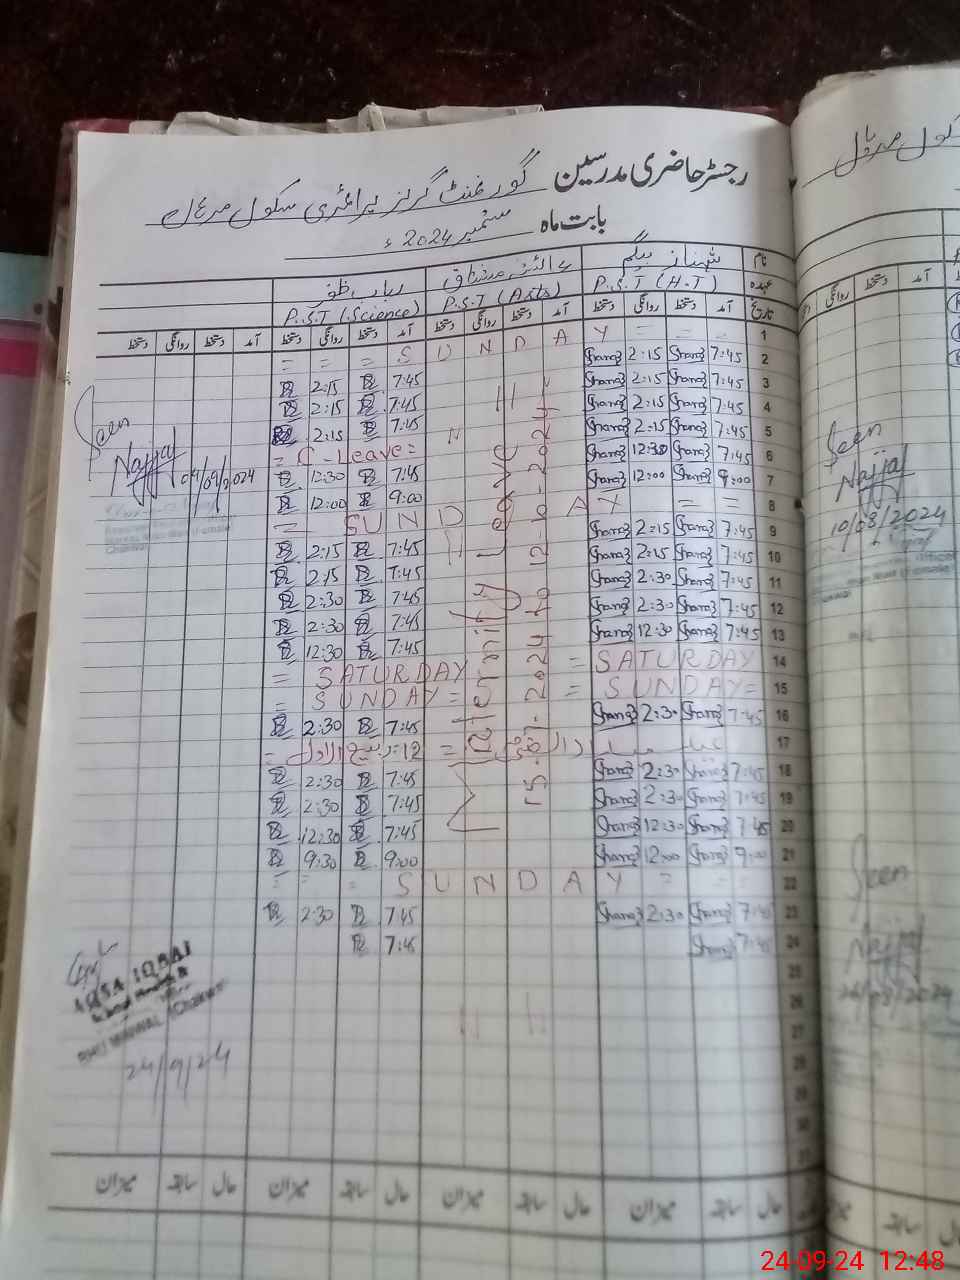 رجسٹر حاضری مدرسین گورنمنٹ گرلز پرائمری سکول مرہال
بابت ماہ ستمبر 2024ء
نام شہناز بیگم رباب ظفر
عہدہ P.S.T (H.T) P.S.T (Arts) P.S.T (Science)
تاریخ آمد دستخط روانگی دستخط آمد دستخط روانگی دستخط آمد دستخط روانگی دستخط آمد دستخط روانگی دستخط
1 = = = S U N D A Y = = =
2 7:45 Shanaz 2:15 Shanaz 7:45 2:15
3 7:45 Shanaz 2:15 Shanaz 7:45 2:15
4 7:45 Shanaz 2:15 Shanaz 7:45 2:15
5 7:45 Shanaz 2:15 Shanaz = C-Leave =
6 7:45 Shanaz 12:30 Shanaz 7:45 12:30
7 9:00 Shanaz 12:00 Shanaz 9:00 12:00
8 = S U N D A Y = =
9 7:45 Shanaz 2:15 Shanaz 7:45 2:15
10 7:45 Shanaz 2:15 Shanaz 7:45 2:15
11 7:45 Shanaz 2:30 Shanaz 7:45 2:30
12 7:45 Shanaz 2:30 Shanaz 7:45 2:30
13 7:45 Shanaz 12:30 Shanaz 7:45 12:30
14 = SATURDAY = SATURDAY
15 = SUNDAY = = SUNDAY =
16 7:45 Shanaz 2:30 Shanaz 7:45 2:30
17 = 12 ربیع الاول =
18 7:45 Shanaz 2:30 Shanaz 7:45 2:30
19 7:45 Shanaz 2:30 Shanaz 7:45 2:30
20 7:45 Shanaz 12:30 Shanaz 7:45 12:30
21 9:00 Shanaz 12:00 Shanaz 9:00 9:30
22 = = = S U N D A Y = = =
23 7:45 Shanaz 2:30 Shanaz 7:45 2:30
24 7:45 Shanaz 7:45
25
26
27
28
29
30
31
Maternity Leave
15-07-2024 to 12-10-2024
Seen
Najjaf
04/09/2024
AQSA IQBAL
24/9/24
حال سابقہ میزان حال سابقہ میزان حال سابقہ میزان حال سابقہ میزان
سکول مرہال
آمد روانگی
Seen
Najjaf
10/08/2024
Seen
Najjaf
26/08/2024
میزان سابقہ حال
24-09-24 12:48